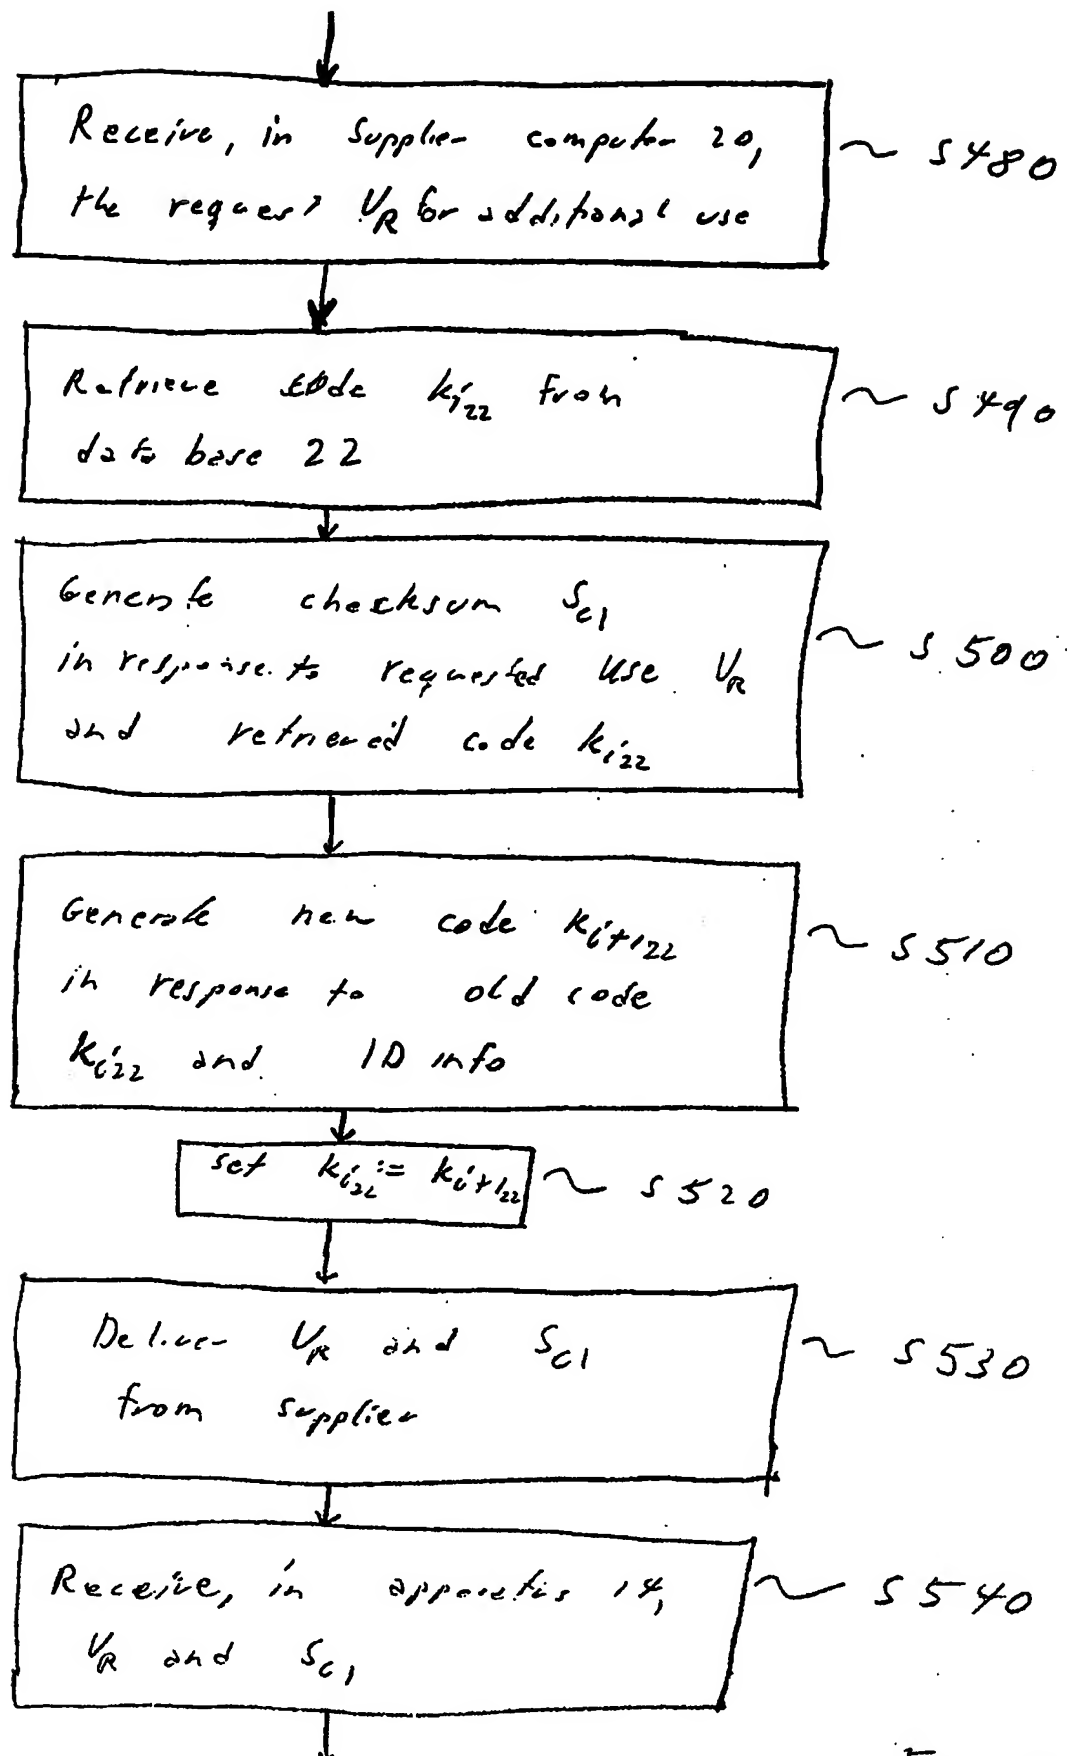 Receive, in Supplier computer 20,
the request VR for additional use
S480
Retrieve code ki22 from
data base 22
S490
Generate checksum Sc1
in response to requested use VR
and retrieved code ki22
S500
Generate new code ki+122
in response to old code
ki22 and ID info
S510
set ki22 := ki+122
S520
Deliver VR and Sc1
from supplier
S530
Receive, in apparatus 14,
VR and Sc1
S540